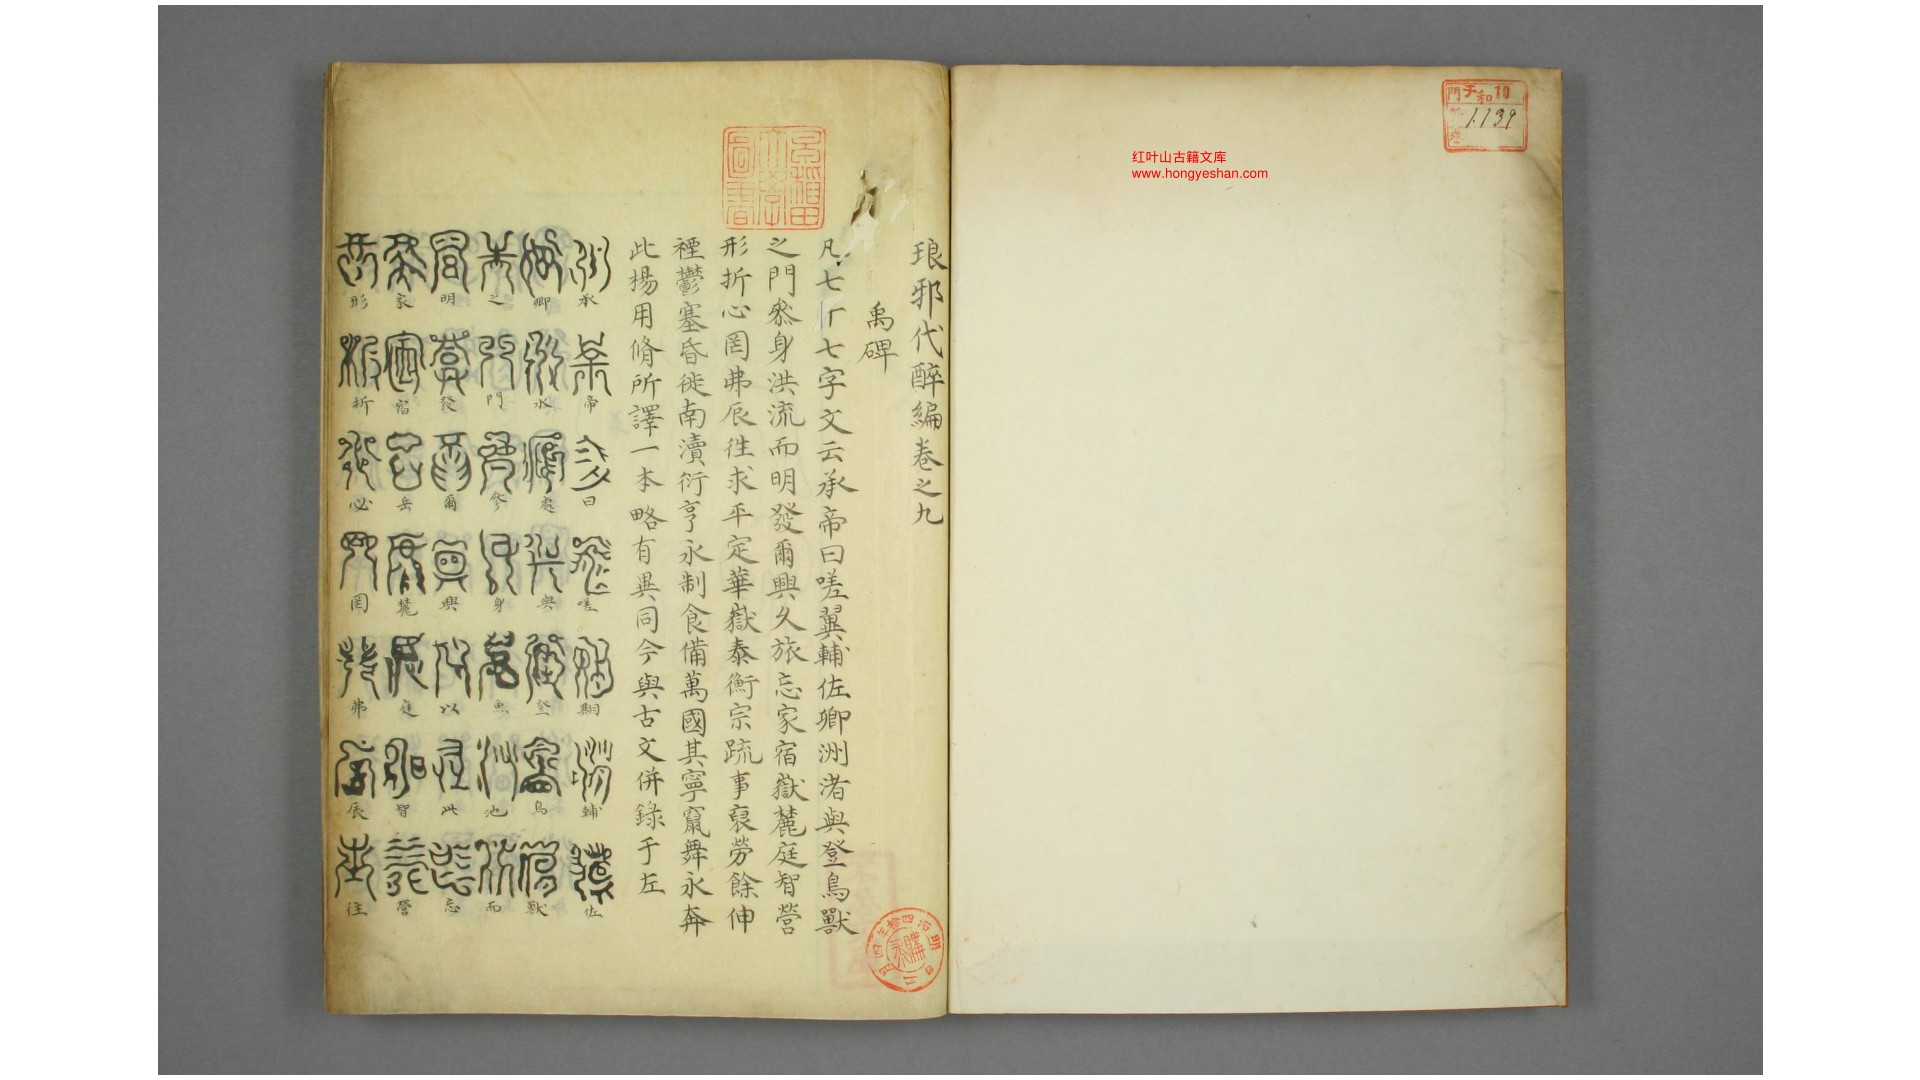 門 子 和 10
1139
红叶山古籍文库
www.hongyeshan.com
琅邪代醉編卷之九
禹碑
凡七十七字文云承帝曰嗟翼輔佐卿洲渚與登鳥獸
之門叅身洪流而明發爾興久旅忘家宿嶽麓庭智營
形折心罔弗辰徃求平定華嶽泰衡宗疏事裒勞餘伸
禋鬱塞昏徙南瀆衍亨永制食備萬國其寧竄舞永奔
此楊用脩所譯一本略有異同今與古文併錄于左
承帝曰嗟翮輔佐
卿水處與登鳥獸
之門參身魚池而
明發爾興以此忘
家宿岳麓庭智營
形折必罔弗辰往
早稻田大學圖書
明治四拾四年三月 購求